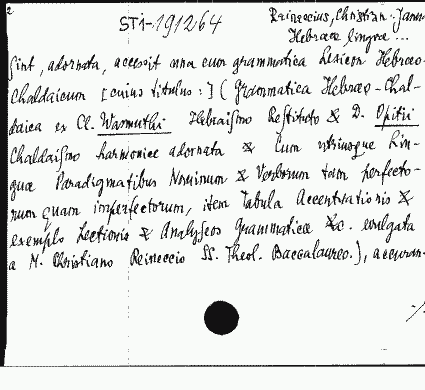 2
STA-191264
Reineccius, Christian. Janua
Hebraeae linguae ...
sint, adornata, accessit una cum grammatica Lexicon Hebraeo-
Chaldaicum [cuius titulus:] (Grammatica Hebraeo-Chal-
daica ex Cl. Wasmuthi Hebraismo Restituto & D. Opitii
Chaldaismo harmonice adornata & Cum utriusque Lin-
guae Paradigmatibus Nominum & Verborum tam perfecto-
rum quam imperfectorum, item Tabula Accentuationis &
exemplo Lectionis & Analyseos Grammaticae &c. evulgata
a M. Christiano Reineccio SS. Theol. Baccalaureo.), accuran-